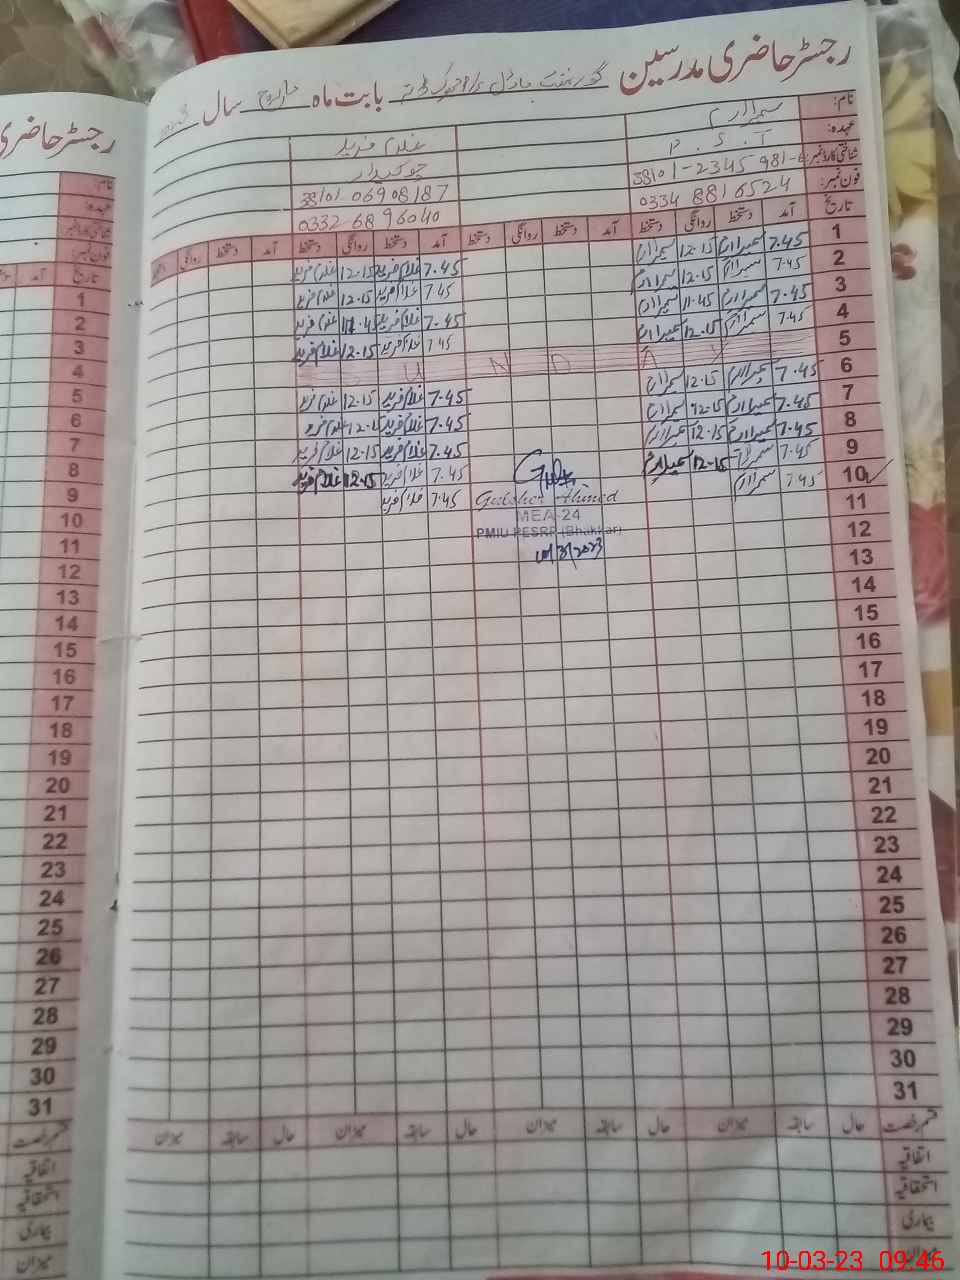 رجسٹر حاضری مدرسین گورنمنٹ ماڈل بابت ماہ مارچ سال
نام:
غلام فرید
عہدہ:
چوکیدار
شناختی کارڈ نمبر: 38101-2345981-6
38101 06908187
فون نمبر: 0334 8816524
0332 6896040
تاریخ آمد دستخط روانگی دستخط آمد دستخط روانگی دستخط آمد دستخط روانگی دستخط آمد دستخط روانگی دستخط
1 7.45 12.15 7.45 غلام فرید 12.15 غلام فرید
2 7.45 12.15 7.45 غلام فرید 12.15 غلام فرید
3 7.45 11.45 7.45 غلام فرید غلام فرید
4 7.45 12.15 7.45 غلام فرید 12.15 غلام فرید
5 S U N D A Y
6 7.45 12.15 7.45 غلام فرید 12.15 غلام فرید
7 7.45 12.15 7.45 غلام فرید غلام فرید
8 7.45 12.15 7.45 غلام فرید 12.15 غلام فرید
9 7.45 12.15 7.45 غلام فرید 12.15 غلام فرید
10 7.45 7.45 غلام فرید
Gulsher Ahmed
MEA-24
PMIU PESRP (Bhakkar)
10/3/2023
11
12
13
14
15
16
17
18
19
20
21
22
23
24
25
26
27
28
29
30
31
قسم رخصت حال سابقہ میزان حال سابقہ میزان حال سابقہ میزان حال سابقہ میزان
اتفاقیہ
استحقاقیہ
بیماری
میزان
رجسٹر حاضری
نام:
عہدہ:
شناختی کارڈ نمبر:
فون نمبر:
تاریخ آمد
1
2
3
4
5
6
7
8
9
10
11
12
13
14
15
16
17
18
19
20
21
22
23
24
25
26
27
28
29
30
31
قسم رخصت
اتفاقیہ
استحقاقیہ
بیماری
میزان
10-03-23 09:46